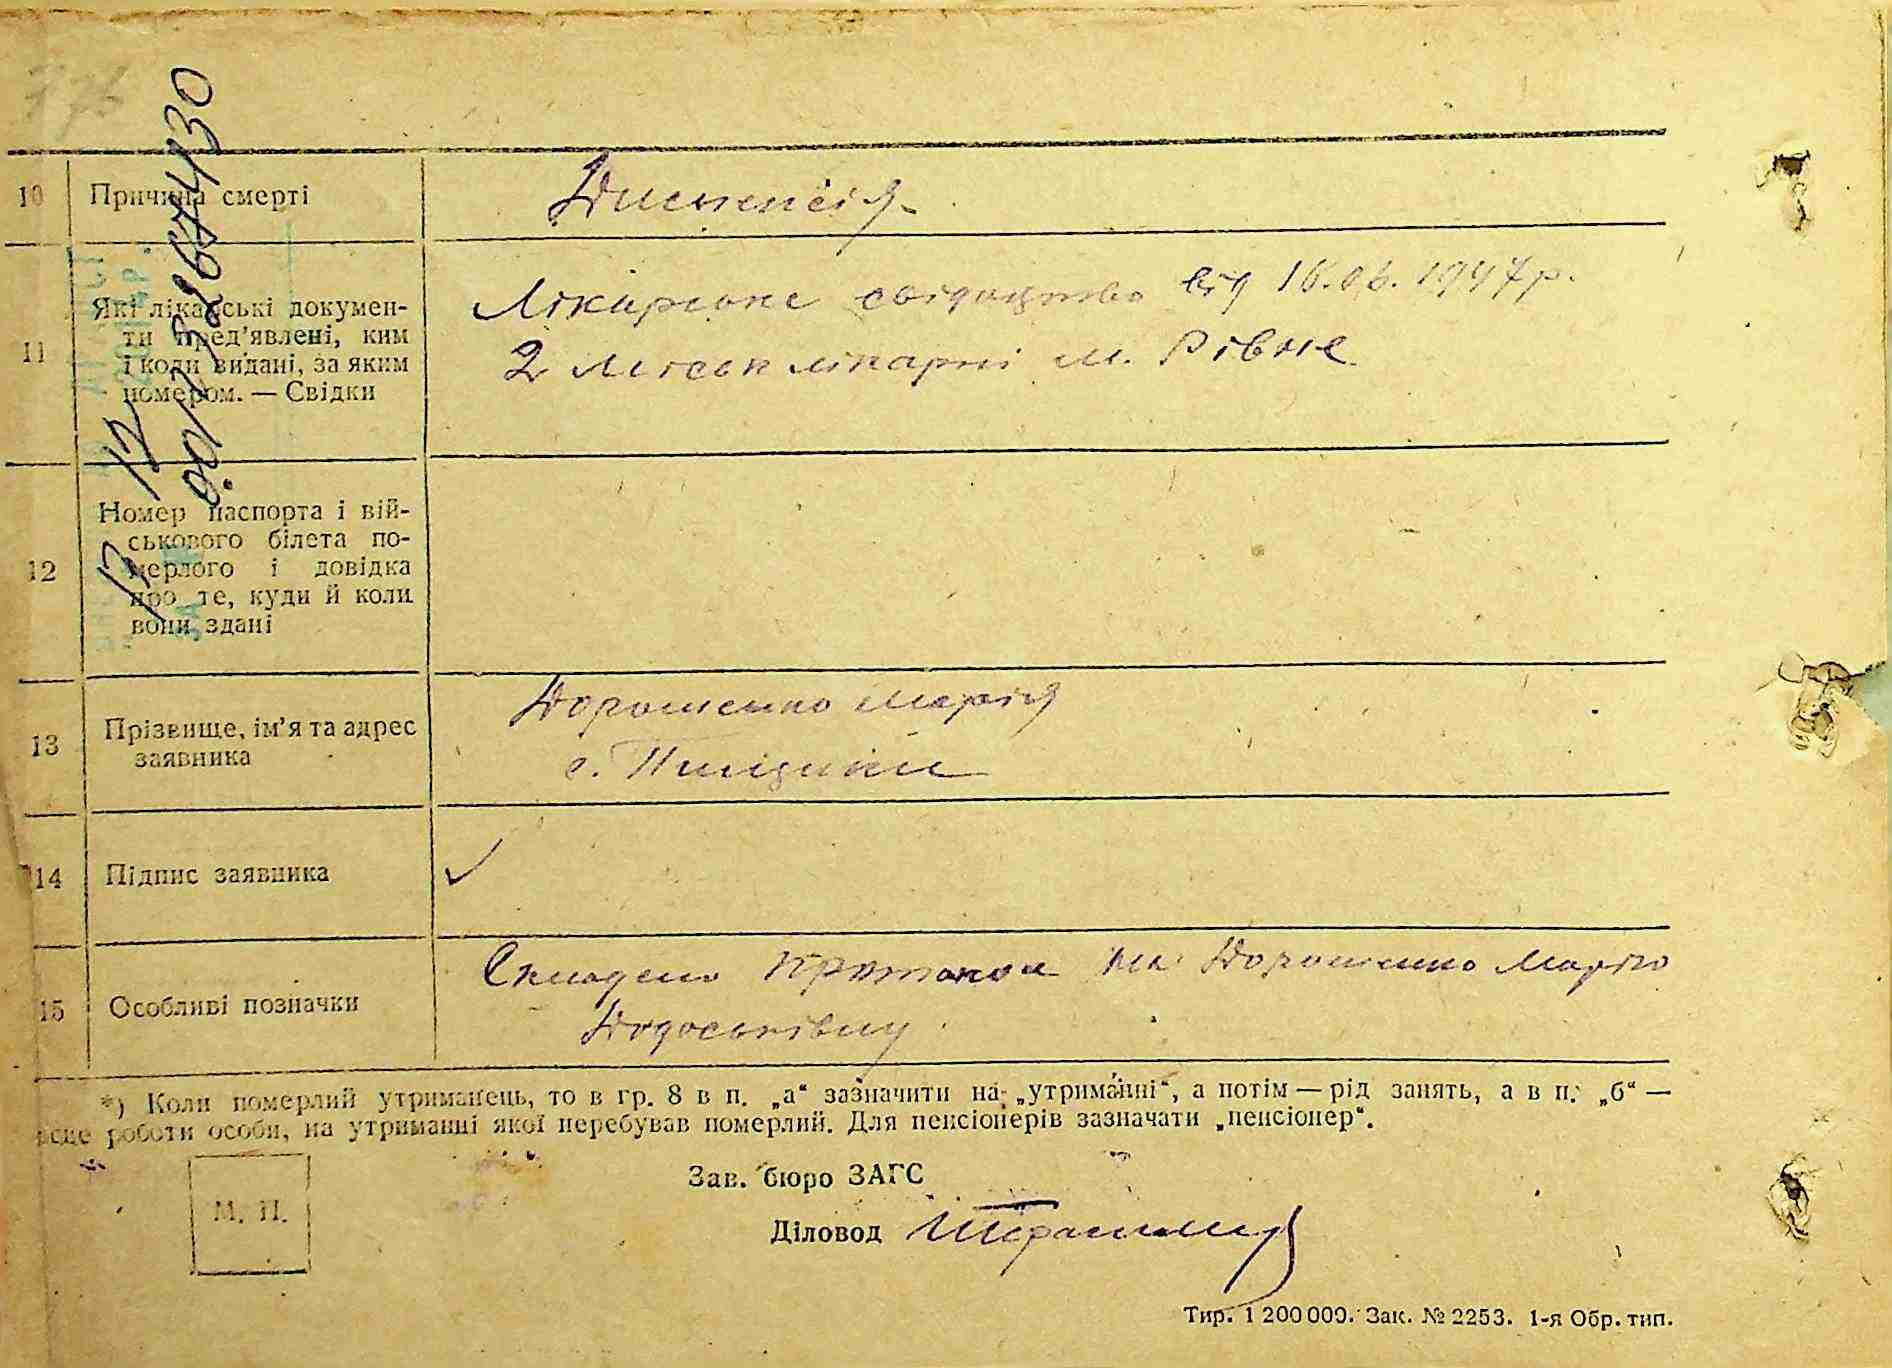 10 Причина смерті
Диспепсія
11 Які лікарські докумен-
ти пред'явлені, ким
і коли видані, за яким
номером. — Свідки
Лікарське свідоцтво від 16.06.1947р.
2 Міськ лікарні м. Рівне
12 Номер паспорта і вій-
ськового білета по-
мерлого і довідка
про те, куди й коли
вони здані
13 Прізвище, ім'я та адрес
заявника
Дорошенко Марія
с.
14 Підпис заявника
✓
15 Особливі позначки
Складено протокол на Дорошенко Марію
*) Коли померлий утриманець, то в гр. 8 в п. „а“ зазначити на „утриманні“, а потім — рід занять, а в п. „б“ —
роботи особи, на утриманні якої перебував померлий. Для пенсіонерів зазначати „пенсіонер“.
М. П.
Зав. бюро ЗАГС
Діловод
Тир. 1 200 000. Зак. № 2253. 1-я Обр. тип.